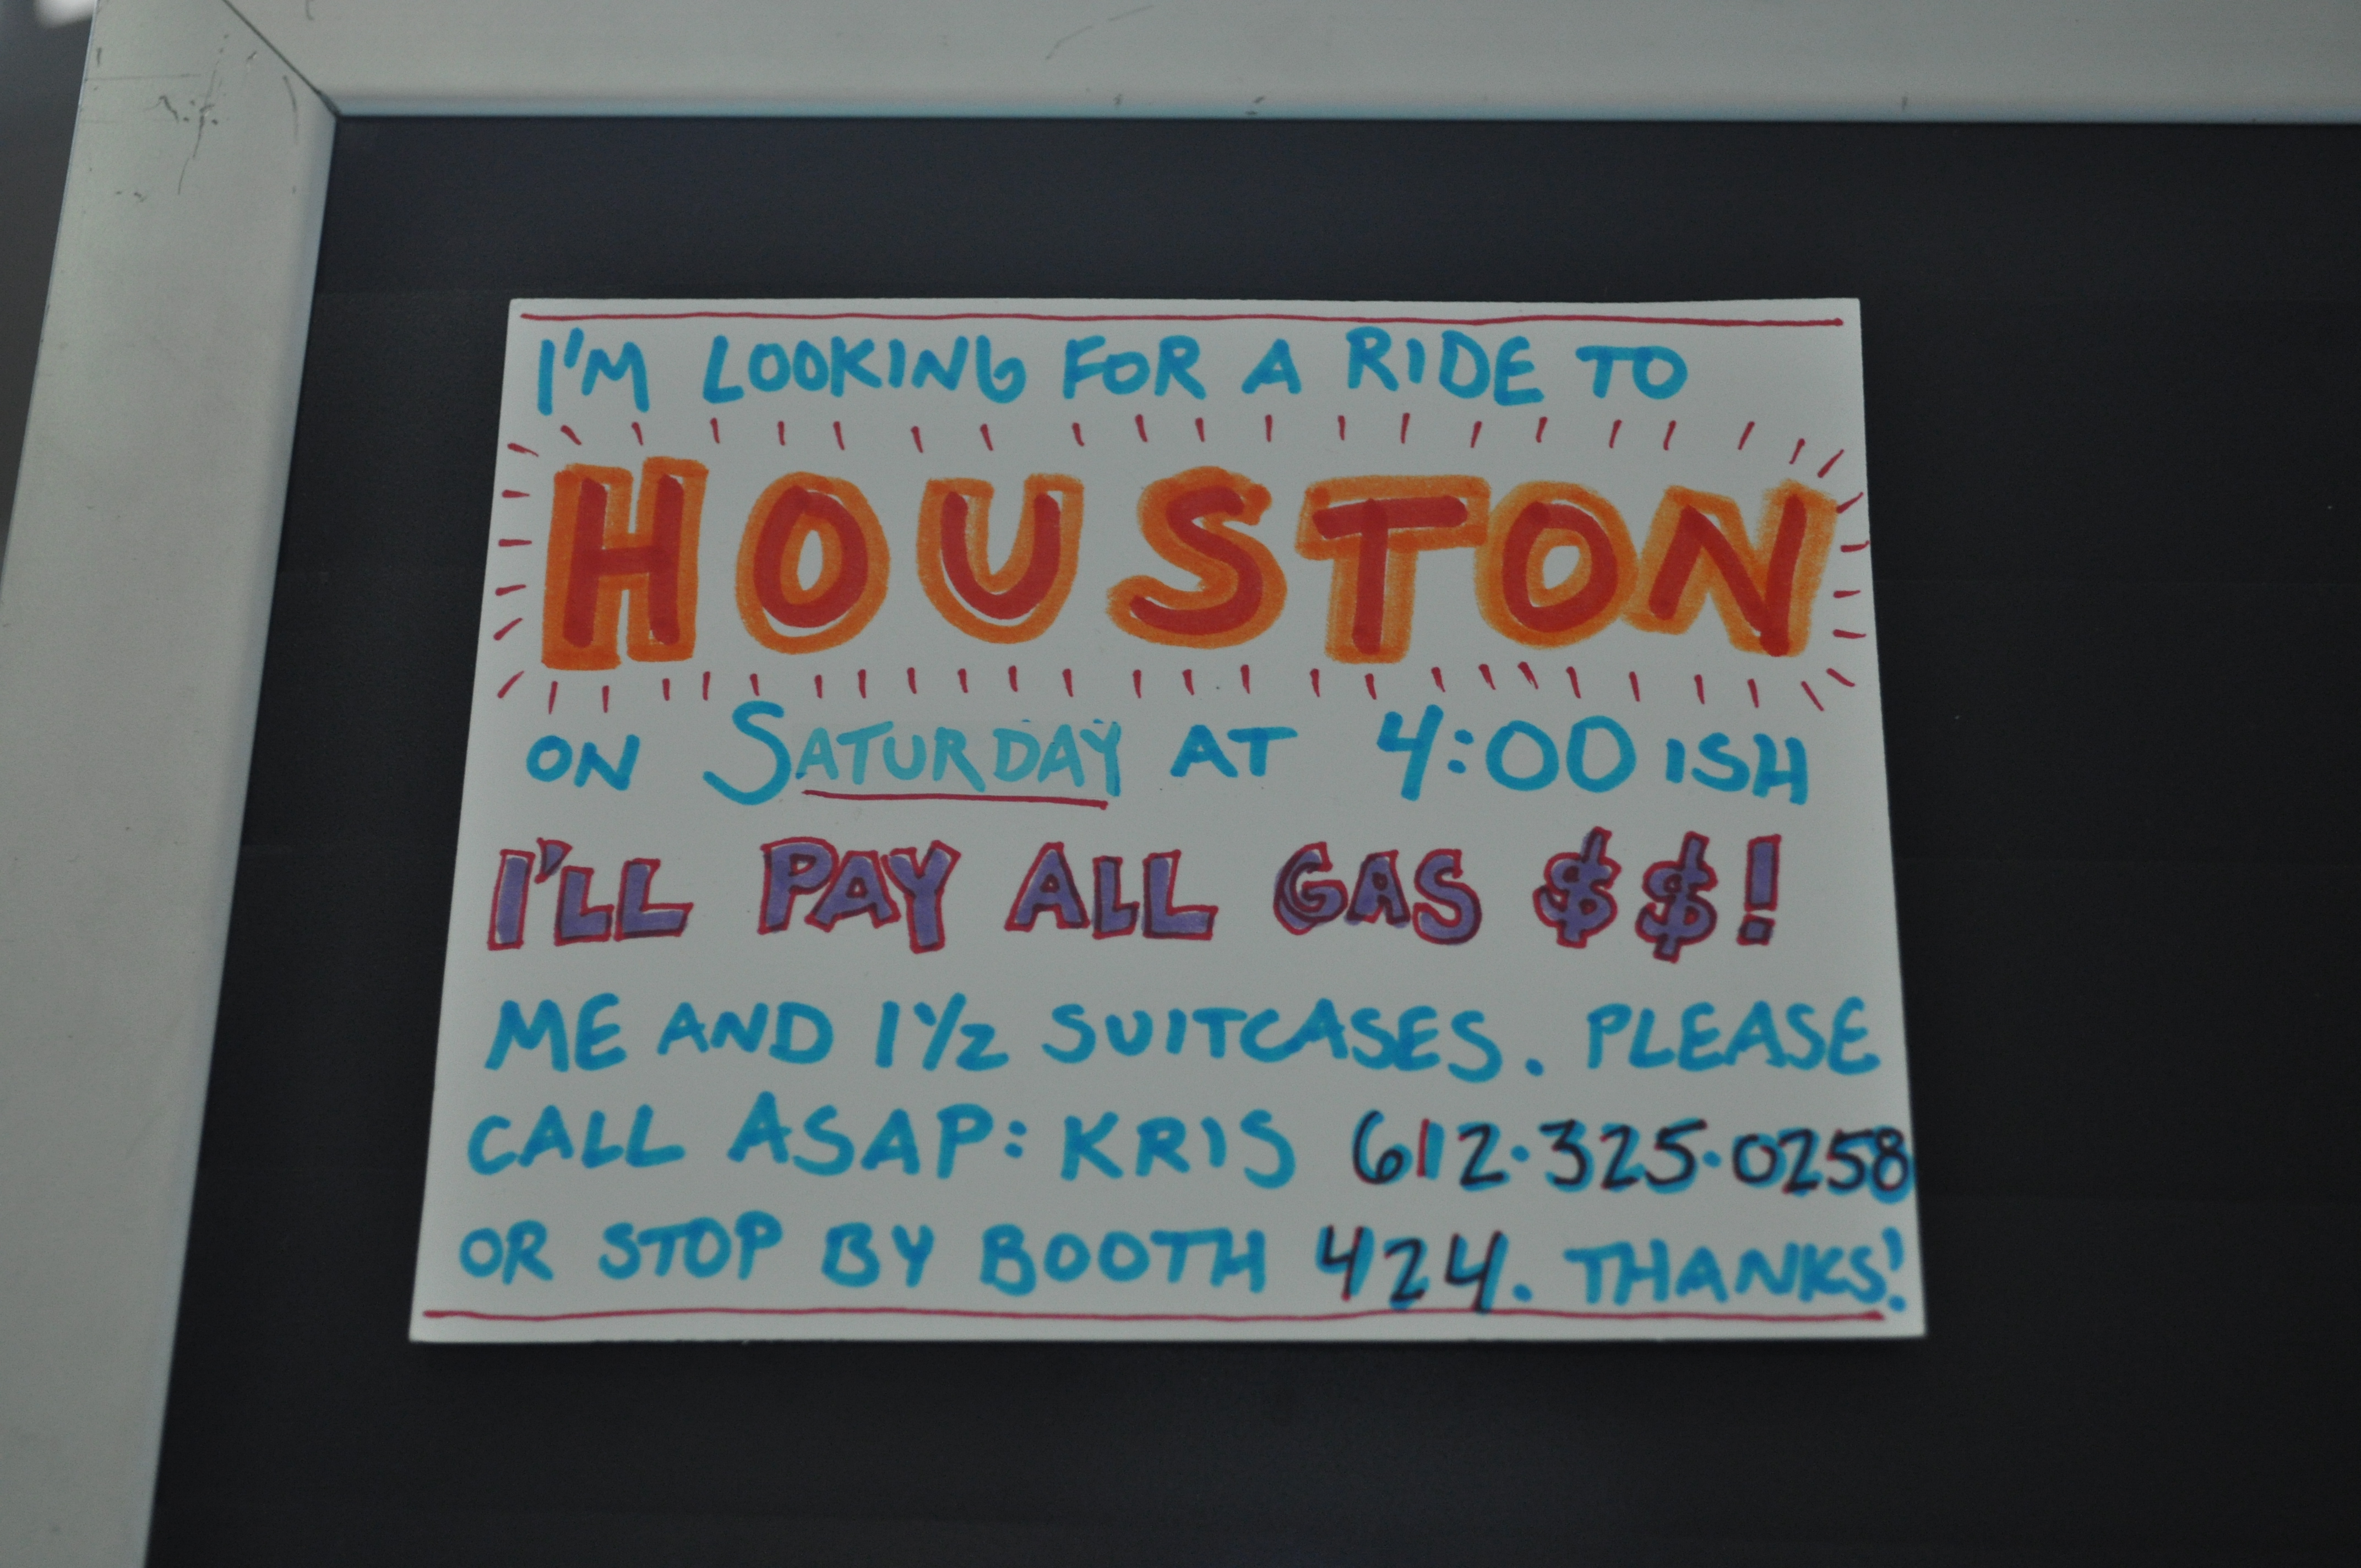 I'M LOOKING FOR A RIDE TO
HOUSTON
ON SATURDAY AT 4:00 ISH
I'LL PAY ALL GAS $$!
ME AND 1½ SUITCASES. PLEASE
CALL ASAP: KRIS 612·325·0258
OR STOP BY BOOTH 424. THANKS!